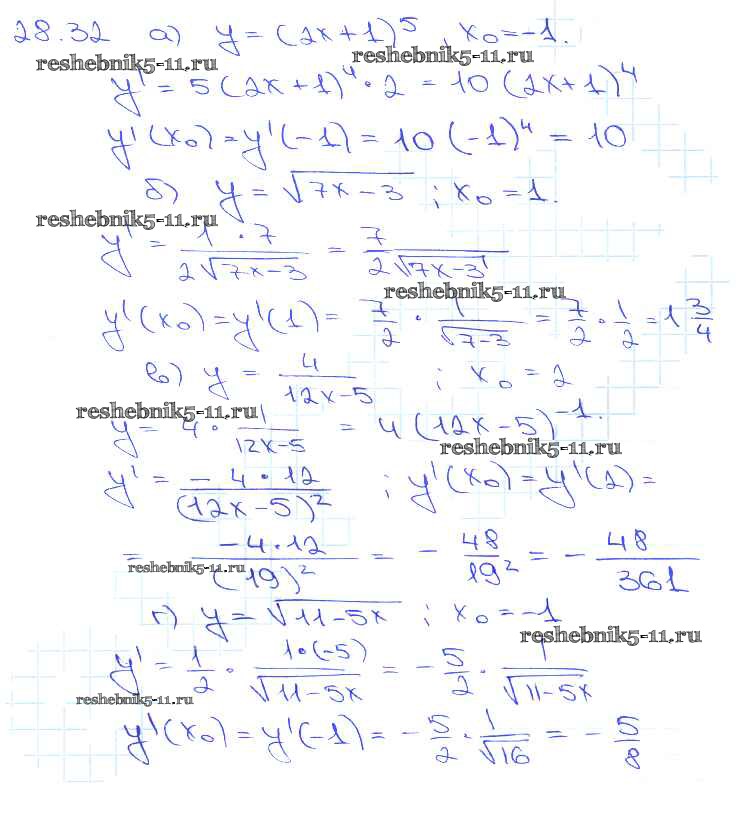 28.32 а) y = (2x+1)^5, x₀ = -1.
reshebnik5-11.ru reshebnik5-11.ru
y' = 5(2x+1)^4 · 2 = 10(2x+1)^4
y'(x₀) = y'(-1) = 10(-1)^4 = 10
б) y = √(7x-3) ; x₀ = 1.
reshebnik5-11.ru
y' = (1·7)/(2√(7x-3)) = 7/(2√(7x-3))
reshebnik5-11.ru
y'(x₀) = y'(1) = 7/2 · 1/√(7-3) = 7/2 · 1/2 = 1 3/4
в) y = 4/(12x-5) ; x₀ = 2
reshebnik5-11.ru
y = 4 · 1/(12x-5) = 4(12x-5)^-1.
reshebnik5-11.ru
y' = (-4·12)/(12x-5)² ; y'(x₀) = y'(2) =
= (-4·12)/(19)² = - 48/19² = - 48/361
reshebnik5-11.ru
г) y = √(11-5x) ; x₀ = -1
reshebnik5-11.ru
y' = 1/2 · (1·(-5))/√(11-5x) = - 5/2 · 1/√(11-5x)
reshebnik5-11.ru
y'(x₀) = y'(-1) = - 5/2 · 1/√16 = - 5/8